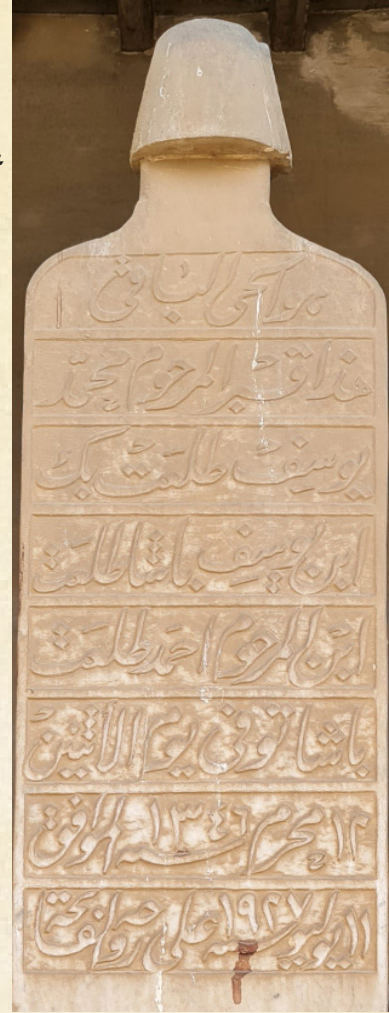 هو الحي الباقي
هذا قبر المرحوم محمد
يوسف طلعت بك
ابن يوسف باشا طلعت
ابن المرحوم احمد طلعت
باشا توفى يوم الاثنين
١٢ محرم سنه ١٣٤٦ الموافق
١١ يوليه سنه ١٩٢٧ على روحه الفاتحة